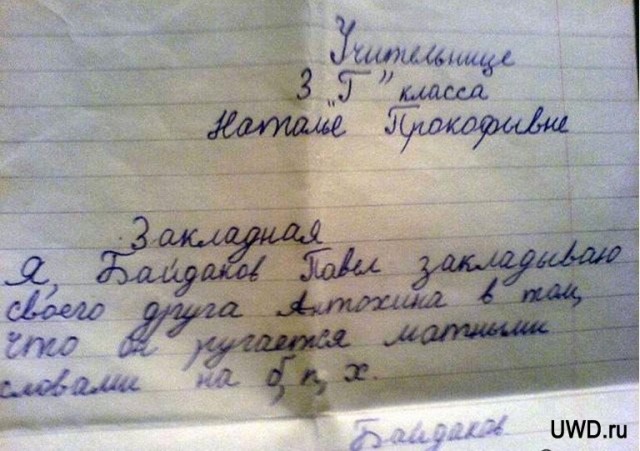 Учительнице
3 "Г" класса
Наталье Прокофивне
Закладная
Я, Байдаков Павел закладываю
своего друга Антохина в том,
что он ругается матными
словами на б, п, х.
Байдаков
UWD.ru